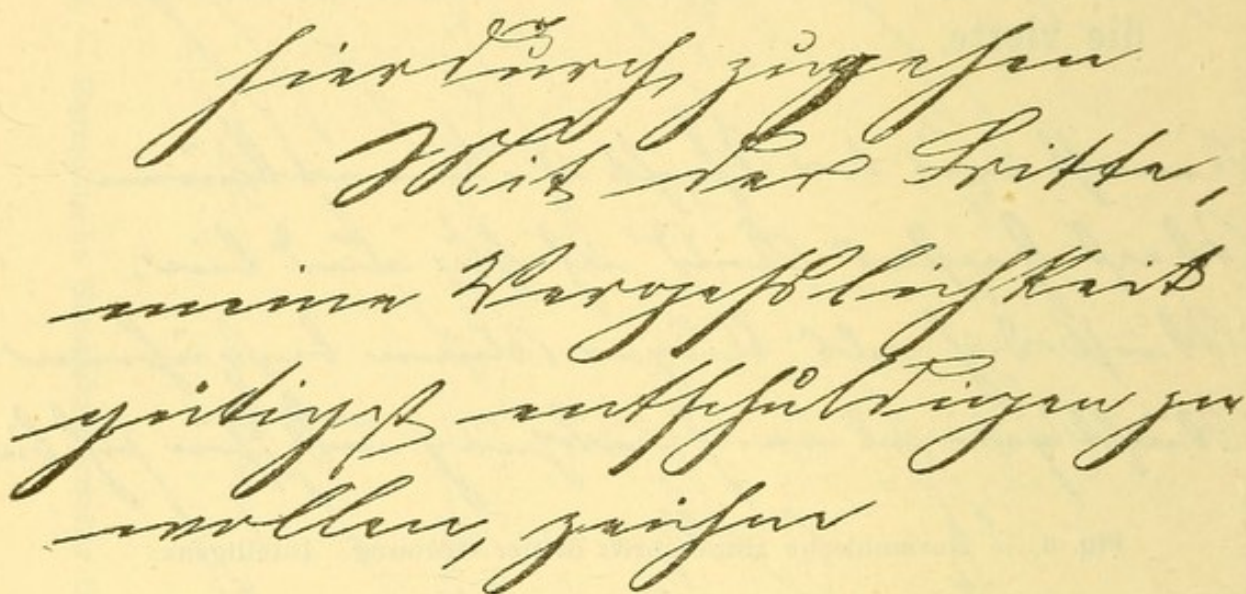 hierdurch zugehen
Mit der Bitte,
meine Vergeßlichkeit
gütigst entschuldigen zu
wollen, zeichne